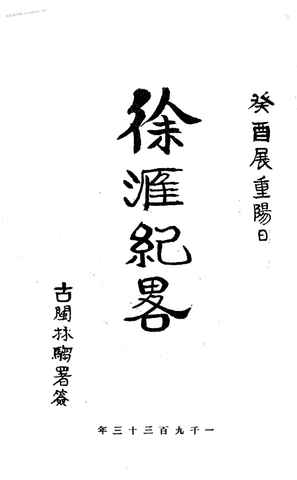 癸酉展重陽日
徐滙紀畧
古閩林騶署簽
一千九百三十三年